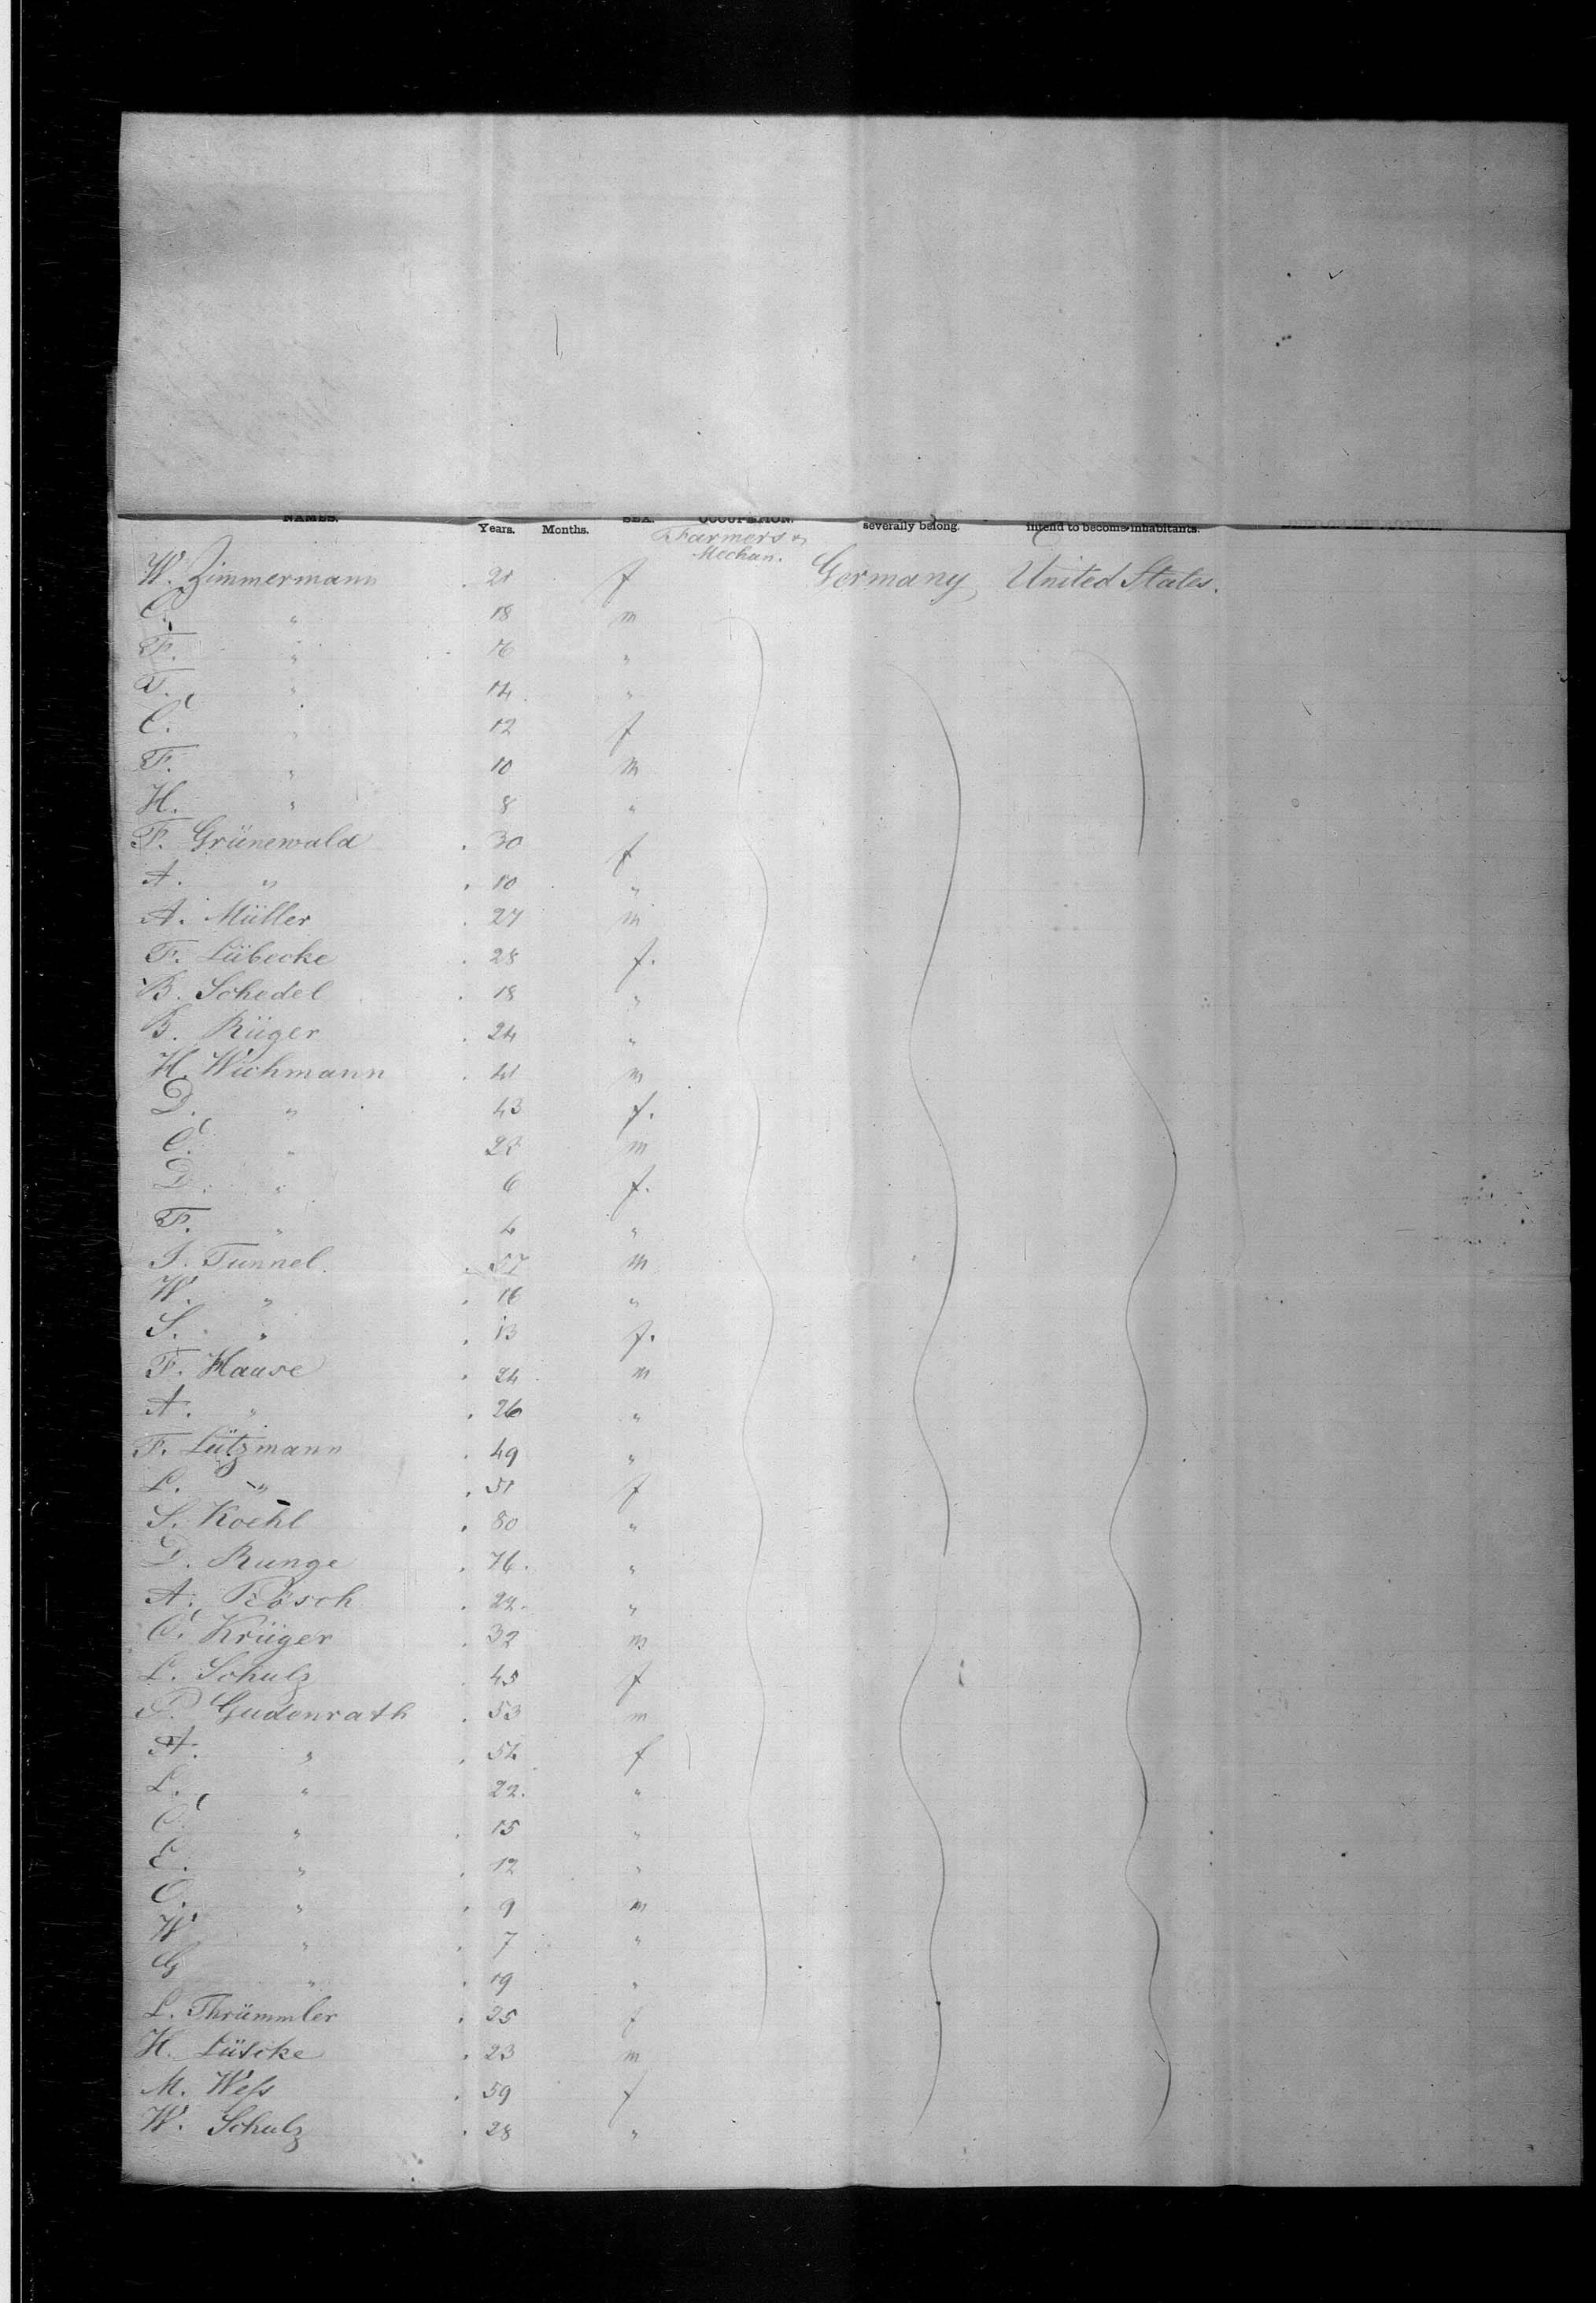 NAMES. SEX. OCCUPATION.
Years. Months. severally belong. intend to become inhabitants.
Farmers &
Mechan.
W. Zimmermann . 21 f Germany United States.
C. " 18 m
F. " 16 "
T. " 14 "
C. " 12 f
F. " 10 m
H. " 8 "
F. Grünewald . 30 f
A. " . 10 "
A. Müller . 27 m
F. Lübecke . 28 f.
B. Schedel . 18 "
B. Rüger . 24 "
H. Wichmann . 41 m
D. " 43 f.
C. " m
D. " 6 f.
F. " 4 "
J. Tunnel . 57 m
W. " . 16 "
S. " . 13 f.
F. Hause . 24 m
A. " . 26 "
F. Lützmann . 49 "
L. " . 51 f
S. Koehl . 80 "
D. Runge . 76. "
A. Rösch . 22. "
C. Krüger . 32 m
L. Schulz . 45 f
P. Gudenrath . 53 m
A. " . 54 f
L. " 22. "
C. " . 15 "
E. " . 12 "
C. " . 9 m
W. " . 7 "
G " . 19 "
L. Thrümmler . 25 f
H. . 23 m
M. Weſs . 59 f
W. Schulz . 28 "